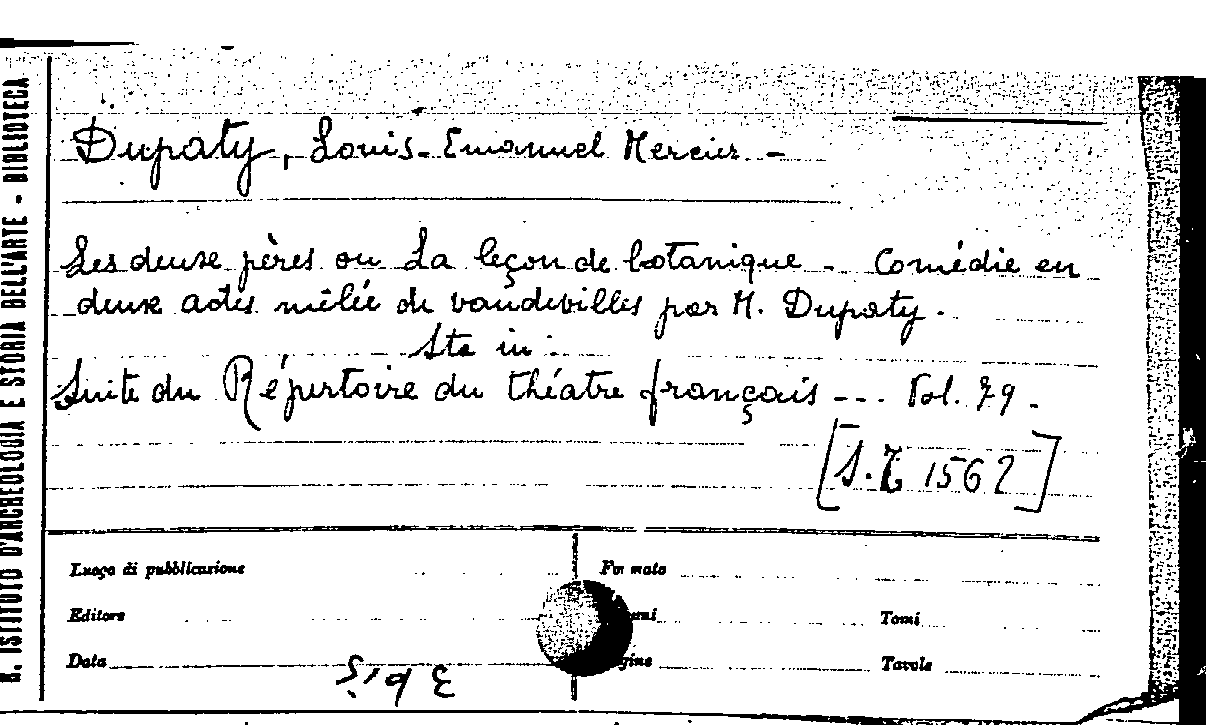 R. ISTITUTO D'ARCHEOLOGIA E STORIA DELL'ARTE - BIBLIOTECA
Dupaty, Louis-Emanuel Mercier -
Les deux pères ou La leçon de botanique. Comédie en
deux actes mêlée de vaudevilles par M. Dupaty.
Sta in:
Suite du Répertoire du théatre français --- Vol. 79.
[S.T. 1562]
Luogo di pubblicazione Formato
Editore Tomi
Data Tavole
3 bis